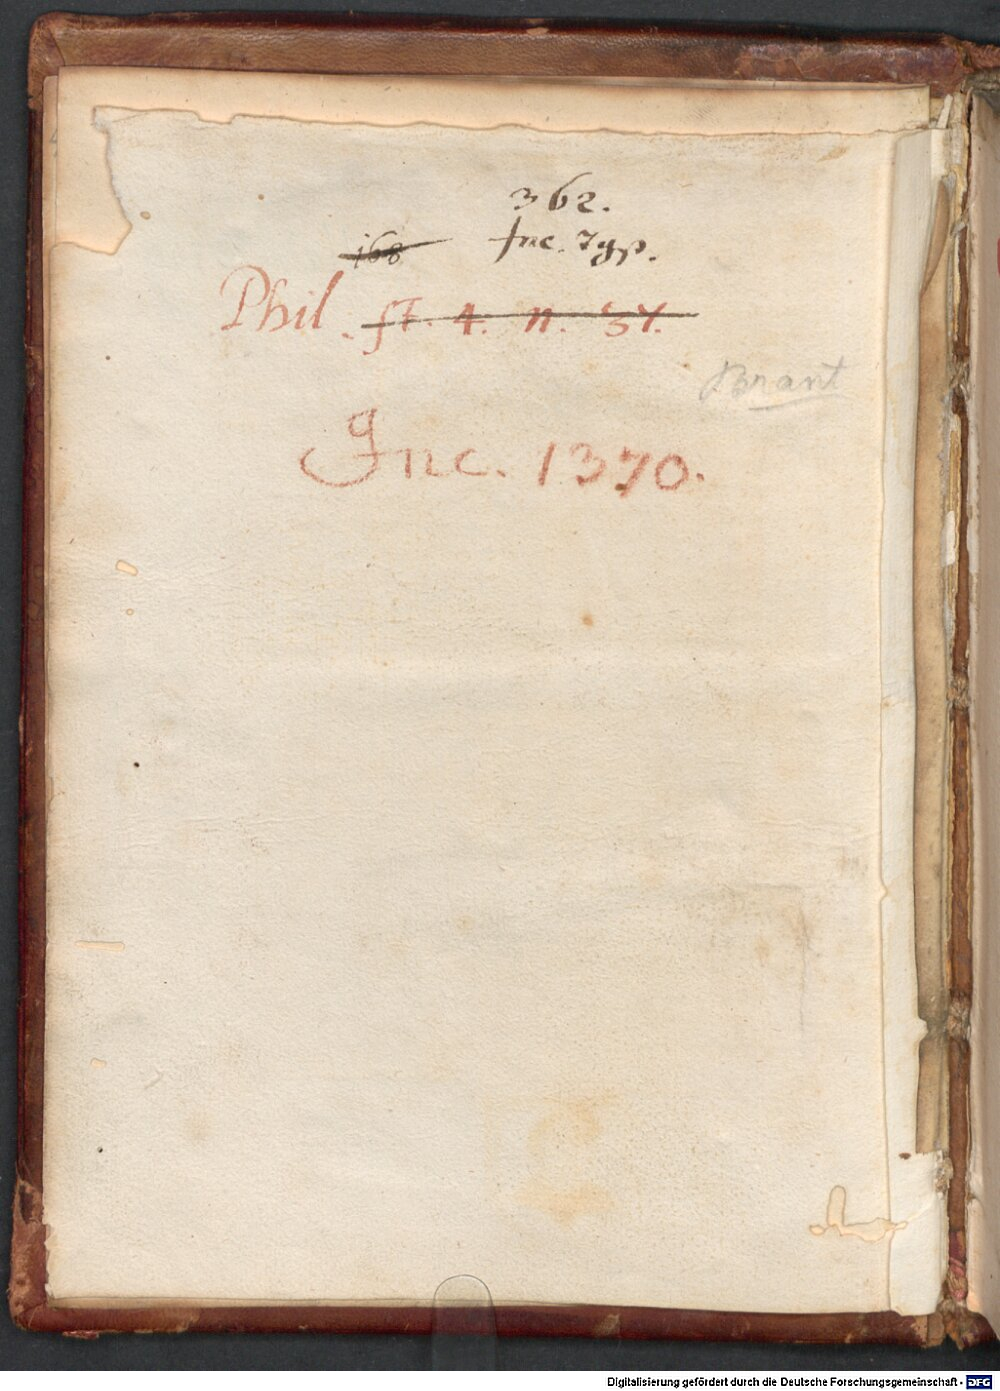 362.
168 Inc. Typ.
Phil. St. 4. n. 34.
Brant
Inc. 1370.
Digitalisierung gefördert durch die Deutsche Forschungsgemeinschaft - DFG